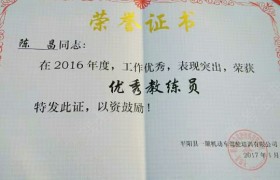 荣誉证书
陈 昌同志:
在2016年度,工作优秀,表现突出,荣获
优秀教练员
特发此证,以资鼓励!
2017年1月